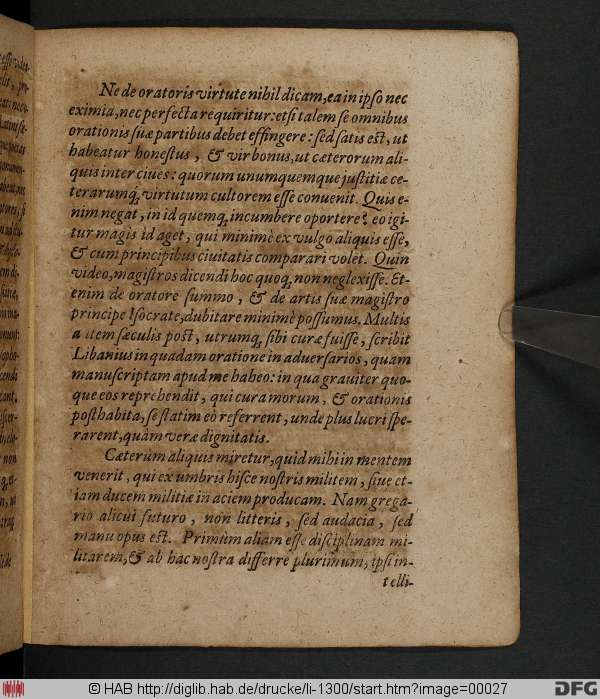 Ne de oratoris virtute nihil dicam, ea in ipſo nec
eximia, nec perfecta requiritur: etſi talem ſe omnibus
orationis ſuæ partibus debet effingere: ſed ſatis eſt, ut
habeatur honeſtus, & vir bonus, ut cæterorum ali-
quis inter ciues: quorum unumquemque juſtitiæ ce-
terarumq́; virtutum cultorem eſſe conuenit. Quis e-
nim negat, in id quemq́; incumbere oportere? eo igi-
tur magis id aget, qui minimè ex vulgo aliquis eſſe,
& cum principibus ciuitatis comparari volet. Quin
video, magiſtros dicendi hoc quoq́; non neglexiſſe. Et-
enim de oratore ſummo, & de artis ſuæ magiſtro
principe Iſocrate, dubitare minimè poſſumus. Multis
autem ſæculis poſt, utrumq́; ſibi curæ fuiſſe, ſcribit
Libanius in quadam oratione in aduerſarios, quam
manuſcriptam apud me habeo: in qua grauiter quo-
que eos reprehendit, qui cura morum, & orationis
poſthabita, ſe ſtatim eò referrent, unde plus lucri ſpe-
rarent, quàm veræ dignitatis.
Cæterum aliquis miretur, quid mihi in mentem
venerit, qui ex umbris hiſce noſtris militem, ſiue et-
iam ducem militiæ in aciem producam. Nam grega-
rio alicui futuro, non litteris, ſed audacia, ſed
manu opus eſt. Primùm aliam eſſe diſciplinam mi-
litarem, & ab hac noſtra differre plurimum, ipſi in-
telli-
© HAB http://diglib.hab.de/drucke/li-1300/start.htm?image=00027
DFG